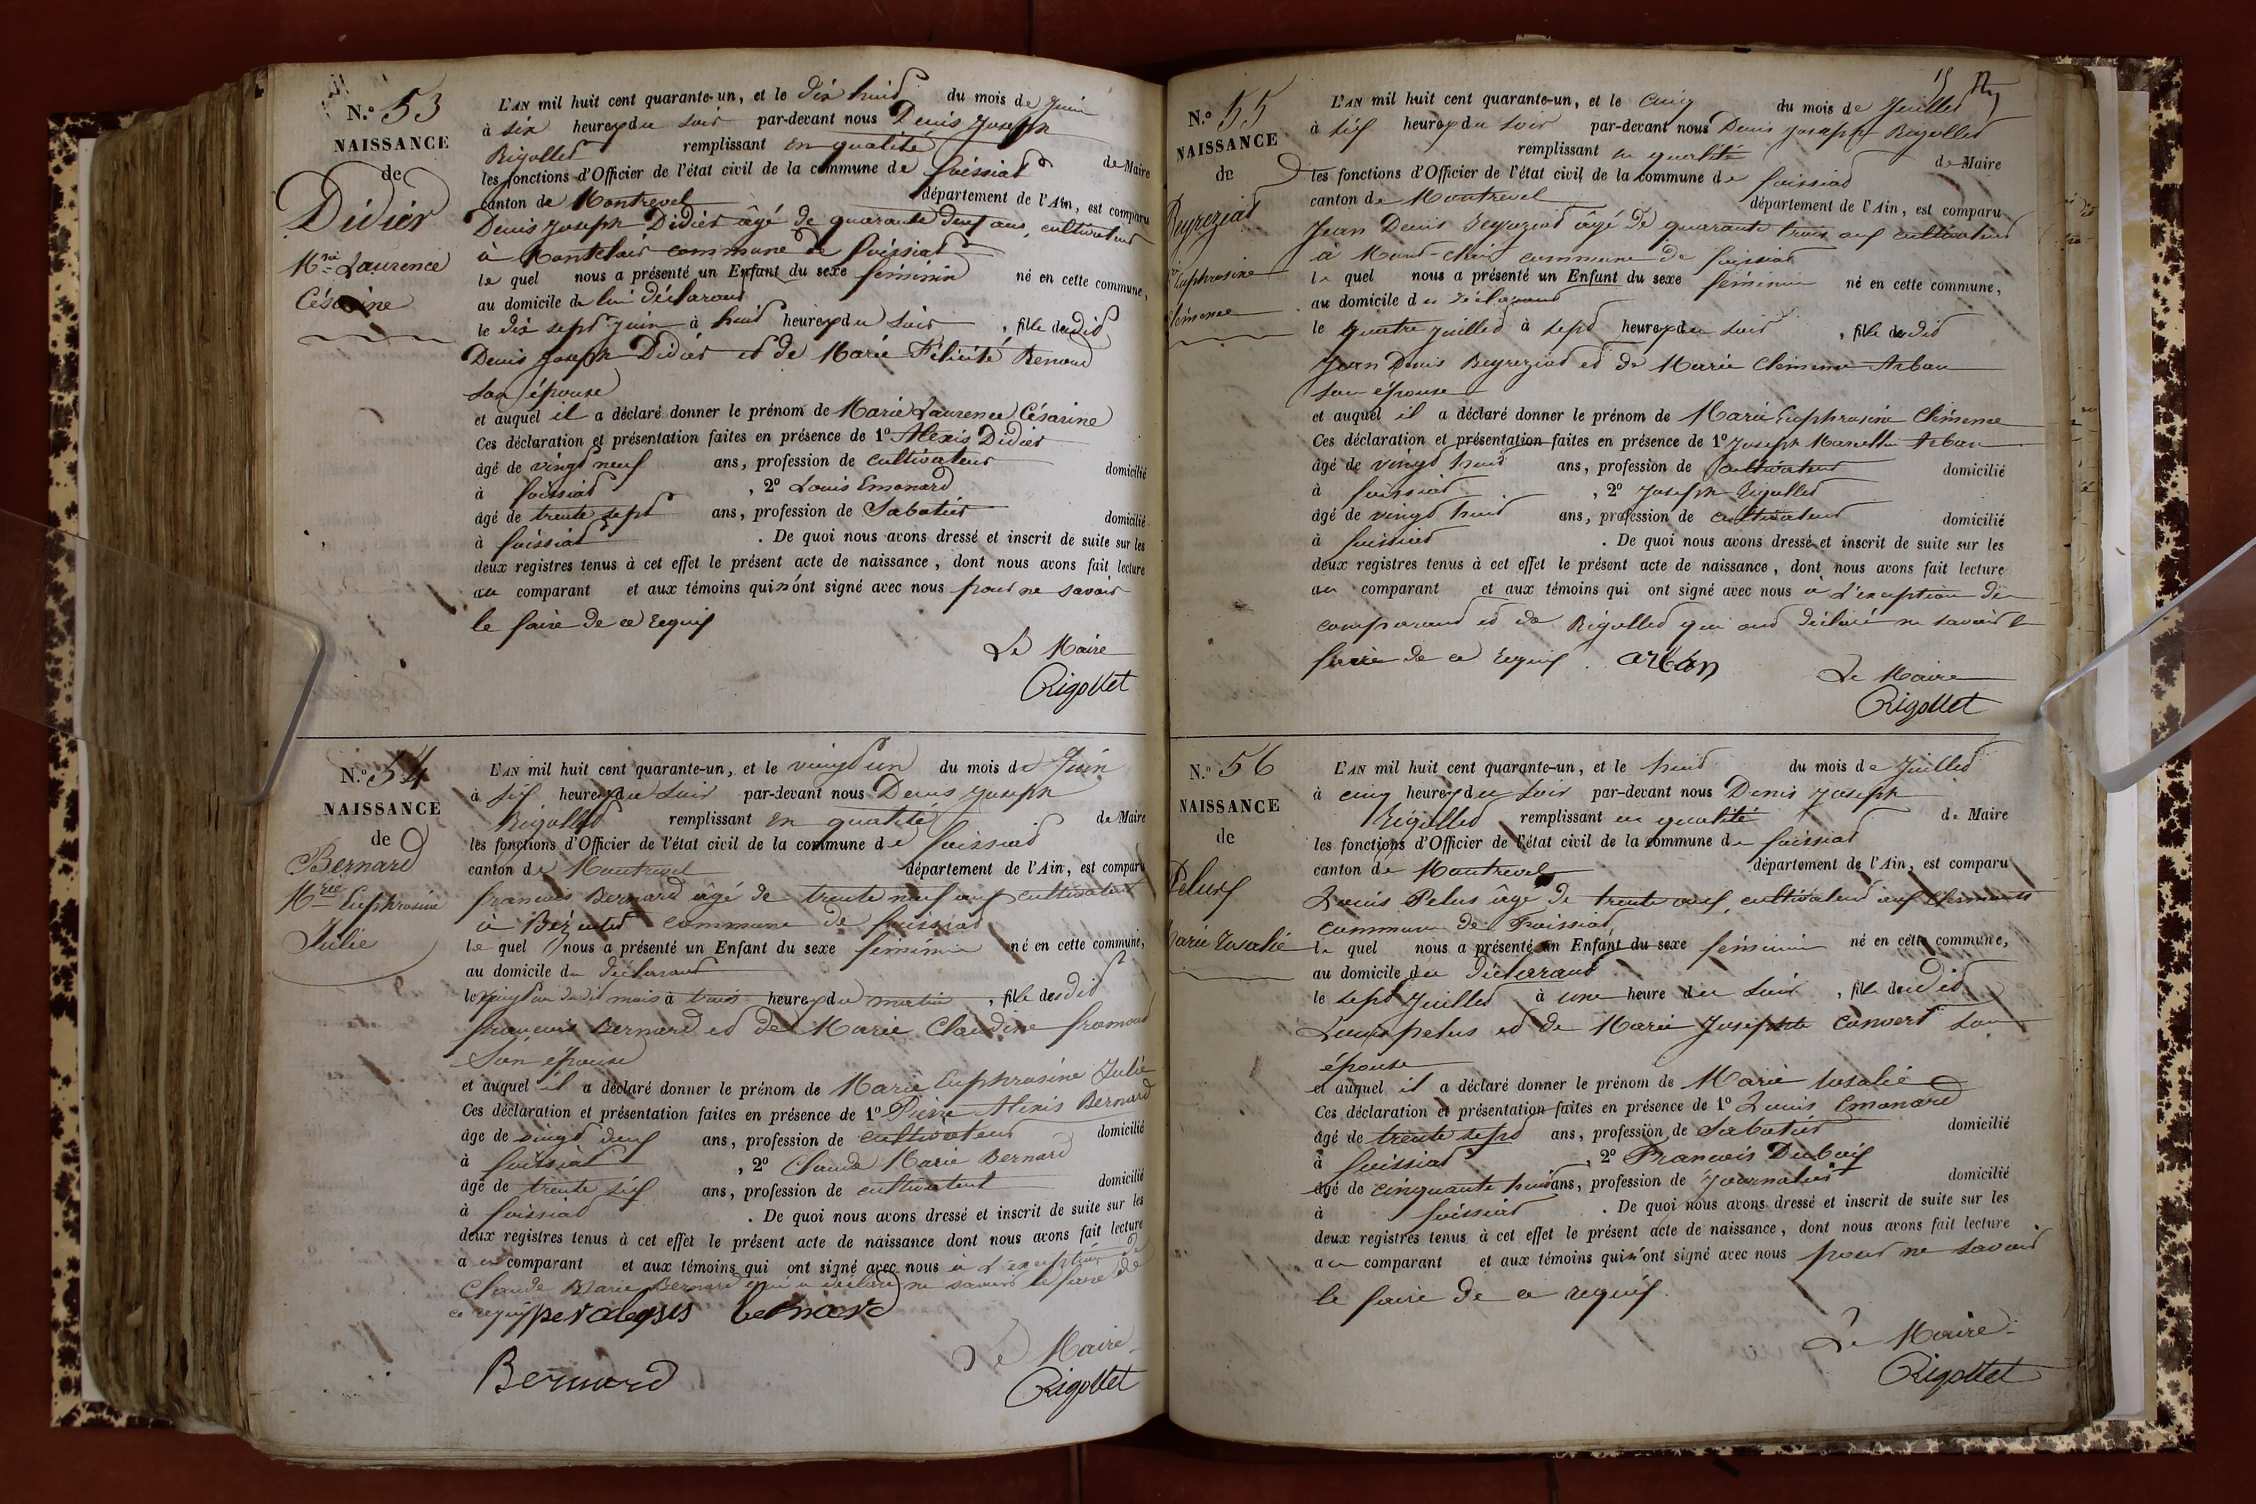 N.º 53
NAISSANCE
de
Didier
Mrie Laurence
Césarine
L'AN mil huit cent quarante-un, et le dix huit du mois de Juin
à six heures du soir par-devant nous Denis Joseph
Rigollet remplissant en qualité de Maire
les fonctions d'Officier de l'état civil de la commune de foissiat
canton de Montrevel département de l'Ain, est comparu
Denis Joseph Didier âgé de quarante deux ans, cultivateur
à Montclair commune de foissiat
le quel nous a présenté un Enfant du sexe féminin né en cette commune,
au domicile de lui déclarant
le dix sept Juin à huit heures du soir, fille dudit
Denis Joseph Didier et de Marie Félicité Renoud
son épouse
et auquel il a déclaré donner le prénom de Marie Laurence Césarine
Ces déclaration et présentation faites en présence de 1º Alexis Didier
âgé de vingt neuf ans, profession de cultivateur domicilié
à foissiat, 2º Louis Emonard
âgé de trente sept ans, profession de Sabotier domicilié
à foissiat. De quoi nous avons dressé et inscrit de suite sur les
deux registres tenus à cet effet le présent acte de naissance, dont nous avons fait lecture
au comparant et aux témoins qui n'ont signé avec nous pour ne savoir
le faire de ce requis
Le Maire
Rigollet
N.º 54
NAISSANCE
de
Bernard
Mrie Euphrosine
Julie
L'AN mil huit cent quarante-un, et le vingt un du mois de Juin
à six heures du soir par-devant nous Denis Joseph
Rigollet remplissant en qualité de Maire
les fonctions d'Officier de l'état civil de la commune de foissiat
canton de Montrevel département de l'Ain, est comparu
françois Bernard âgé de trente neuf ans cultivateur
à commune de foissiat
le quel nous a présenté un Enfant du sexe féminin né en cette commune,
au domicile du déclarant
le vingt un dudit mois à trois heures du matin, fille dudit
françois Bernard et de Marie Claudine fromont
son épouse
et auquel il a déclaré donner le prénom de Marie Euphrosine Julie
Ces déclaration et présentation faites en présence de 1º Pierre Alexis Bernard
âgé de vingt deux ans, profession de cultivateur domicilié
à foissiat, 2º Claude Marie Bernard
âgé de trente six ans, profession de cultivateur domicilié
à foissiat. De quoi nous avons dressé et inscrit de suite sur les
deux registres tenus à cet effet le présent acte de naissance dont nous avons fait lecture
au comparant et aux témoins qui ont signé avec nous à l'exception de
Claude Marie Bernard qui a déclaré ne savoir le faire de
ce requis bernard
Bernard
Le Maire
Rigollet
15
N.º 55
NAISSANCE
de
Beyreziat
Euphrosine
Clémence
L'AN mil huit cent quarante-un, et le cinq du mois de Juillet
à six heures du soir par-devant nous Denis Joseph Rigollet
remplissant en qualité de Maire
les fonctions d'Officier de l'état civil de la commune de foissiat
canton de Montrevel département de l'Ain, est comparu
Jean Denis Beyreziat âgé de quarante trois ans cultivateur
à Mont-clair commune de foissiat
le quel nous a présenté un Enfant du sexe féminin né en cette commune,
au domicile du déclarant
le quatre juillet à sept heures du soir, fille dudit
Jean Denis Beyreziat et de Marie Clémence Arban
son épouse
et auquel il a déclaré donner le prénom de Marie Euphrosine Clémence
Ces déclaration et présentation faites en présence de 1º Joseph Arban
âgé de vingt huit ans, profession de cultivateur domicilié
à foissiat, 2º Joseph Rigollet
âgé de vingt huit ans, profession de cultivateur domicilié
à foissiat. De quoi nous avons dressé et inscrit de suite sur les
deux registres tenus à cet effet le présent acte de naissance, dont nous avons fait lecture
au comparant et aux témoins qui ont signé avec nous à l'exception du
comparant et de Rigollet qui ont déclaré ne savoir le
faire de ce requis. arban
Le Maire
Rigollet
N.º 56
NAISSANCE
de
Pelus
Marie Rosalie
L'AN mil huit cent quarante-un, et le huit du mois de Juillet
à cinq heures du soir par-devant nous Denis Joseph
Rigollet remplissant en qualité de Maire
les fonctions d'Officier de l'état civil de la commune de foissiat
canton de Montrevel département de l'Ain, est comparu
Louis Pelus âgé de trente ans, cultivateur aux
commune de Foissiat
le quel nous a présenté un Enfant du sexe féminin né en cette commune,
au domicile du déclarant
le sept Juillet à une heure du soir, fille dudit
Louis pelus et de Marie Josephte Convert son
épouse
et auquel il a déclaré donner le prénom de Marie Rosalie
Ces déclaration et présentation faites en présence de 1º Louis Emonard
âgé de trente sept ans, profession de Sabotier domicilié
à foissiat, 2º Francois Dubois
âgé de cinquante huit ans, profession de Journalier domicilié
à foissiat. De quoi nous avons dressé et inscrit de suite sur les
deux registres tenus à cet effet le présent acte de naissance, dont nous avons fait lecture
au comparant et aux témoins qui n'ont signé avec nous pour ne savoir
le faire de ce requis
Le Maire
Rigollet